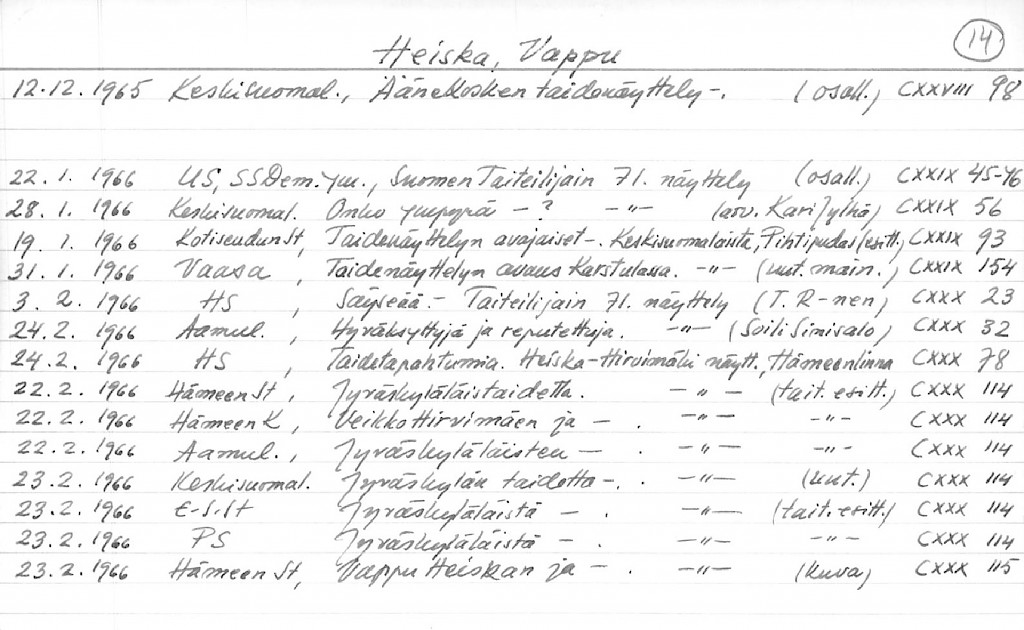 14
Heiska, Vappu
12.12.1965 Keskisuomal., Äänekosken taidenäyttely -. (osall.) CXXVIII 98
22.1.1966 US, SSDem. ym., Suomen Taiteilijain 71. näyttely (osall.) CXXIX 45-46
28.1.1966 Keskisuomal. Onko ympyrä - ? -"- (arv. Kari Jylhä) CXXIX 56
19.1.1966 Kotiseudun St, Taidenäyttelyn avajaiset -. Keskisuomalaista, Pihtipudas (esitt.) CXXIX 93
31.1.1966 Vaasa, Taidenäyttelyn avaus Karstulassa. -"- (uut. main.) CXXIX 154
3.2.1966 HS, Säyseää. - Taiteilijain 71. näyttely (T. R-nen) CXXX 23
24.2.1966 Aamul., Hyväksyttyjä ja reputettuja. -"- (Soili Sinisalo) CXXX 32
24.2.1966 HS, Taidetapahtumia. Heiska-Hirvimäki näytt., Hämeenlinna CXXX 78
22.2.1966 Hämeen St, Jyväskyläläistaidetta. -"- (tait. esitt.) CXXX 114
22.2.1966 Hämeen K, Veikko Hirvimäen ja -. -"- -"- CXXX 114
22.2.1966 Aamul., Jyväskyläläisten -. -"- -"- CXXX 114
23.2.1966 Keskisuomal. Jyväskylän taidetta -. -"- (uut.) CXXX 114
23.2.1966 E-S.St Jyväskyläläistä -. -"- (tait. esitt.) CXXX 114
23.2.1966 PS Jyväskyläläistä -. -"- -"- CXXX 114
23.2.1966 Hämeen St, Vappu Heiskan ja -. -"- (kuva) CXXX 115